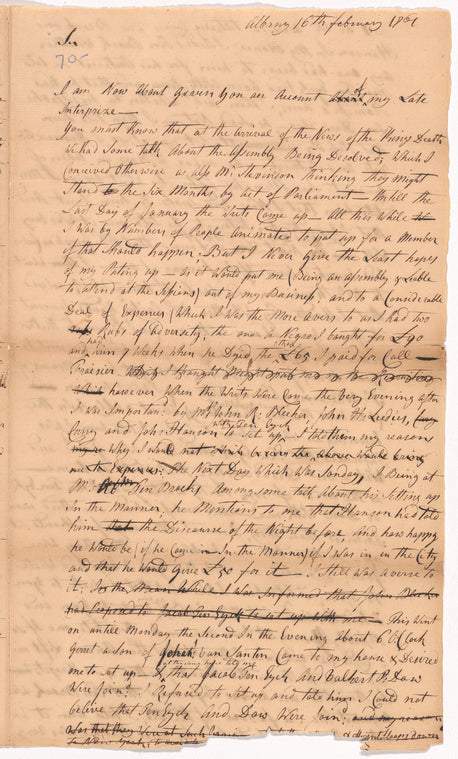 Albany 16th February 1761
Sir
70-
I am Now About Given you an Account of my Late
Interprize —
You must Know that at the arrival of the News of the Kings Death
we had Some talk About the Assembly Being Desolved; which I
Conceived Otherwise as also Mr. Stevenson thinking they might
Stand to the Six Months by Act of Parliament — Untill the
Last Day of January the Writs Came up — All this while
I was by Numbers of People Animated to put up for a Member
if that Should happen, But I Never Give the Least hopes
of my Puting up — as it would put me (Being an Assembly & Leable
to attend at the Sessions) out of my Business, and to a Considerable
Deal of Expences (Which I was the More Avers to as I had two
Raps of Adversity, the one a Negro I baught for £90
and had him 9 Weeks when he Dyed, the other £65 I paid for Call —
Brasier
however When the Writs Were Come the Very Evening after
I was Importand by Mrs. John R: Bleeker, John Hs. Lydies,
Corry and John: Hanson to Set up with Ten Eyck, I told them my reasons
Why I would not
The Next Day Which was Sunday, I Being at
Mr. Ten Broecks Among some talk About his Setting up
In the Manner, he Mentions to me that Hanson had told
him the Discourse of the Night before, and how happy
he Would be (if he Came In the Manner) if I was in in the City
and that he Would Give £50 for it — I Still Was averse to
it; In the Mean While I was Informed that John Bleeker
had to Jacob Ten Eyck to set up with one — This Went
on untill Monday the Second In the Evening about 6 OClock
Govert a Son of van Santen Came to my house & Desired
me to Set up — at the Same time told me that Jacob Ten Eyck and Volkert P. Dow
Were Join'd: I Refused to Set up and told him I Could not
belive that Ten Eyck And Dow Were Join'd: and my reason
Was that they Were at Such
to New York,